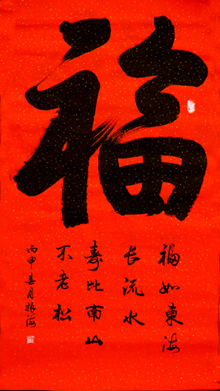 福
福如東海
长流水
壽比南山
不老松
丙申春月振海